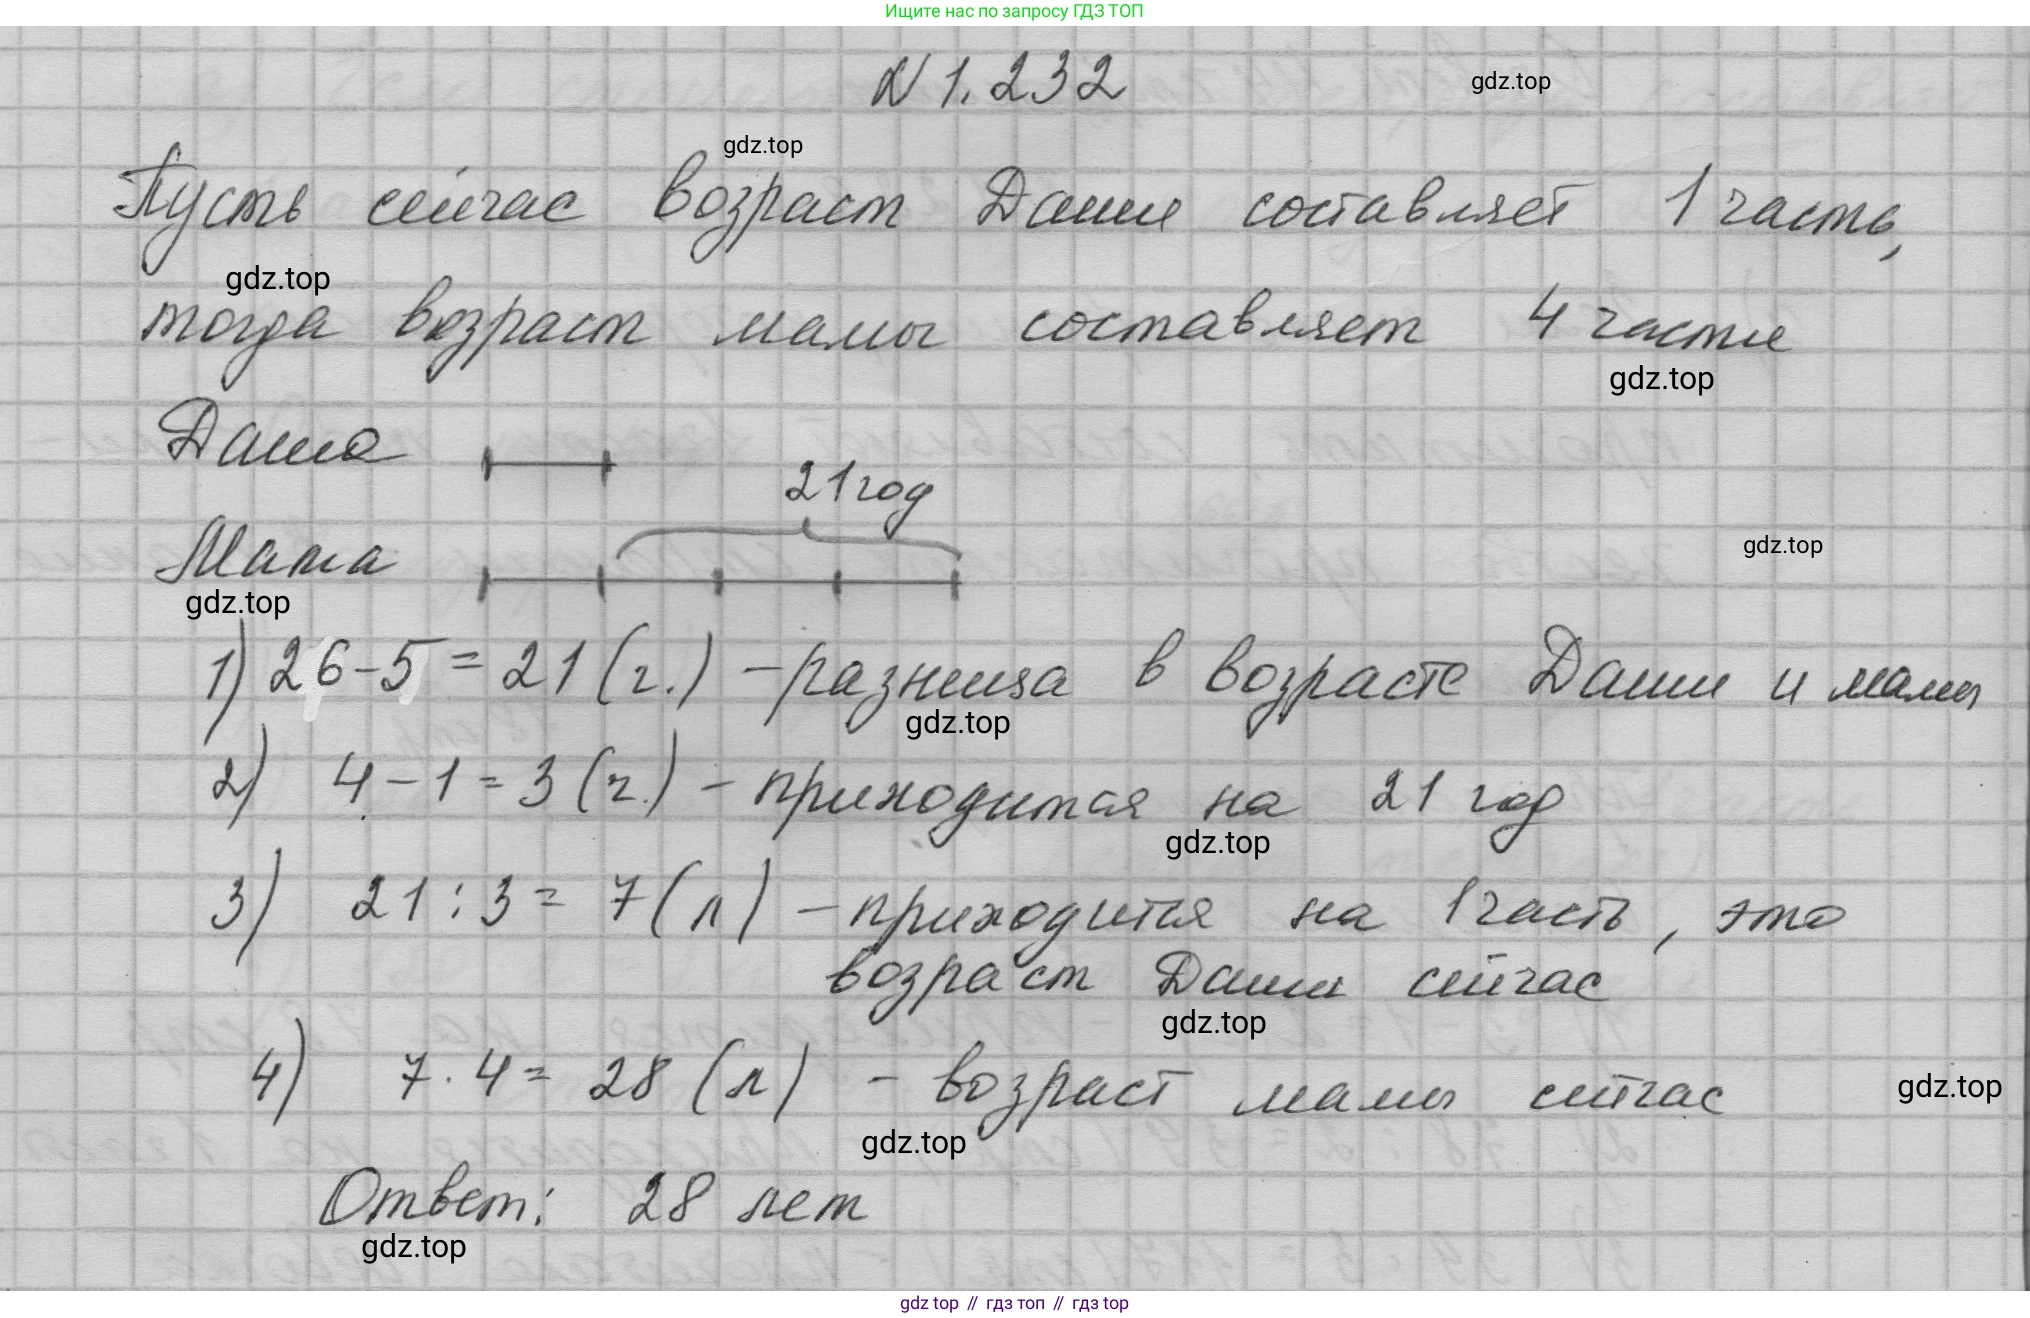 Ищите нас по запросу ГДЗ ТОП
N 1.232
gdz.top
gdz.top
Пусть сейчас возраст Даши составляет 1 часть,
gdz.top
тогда возраст мамы составляет 4 части
gdz.top
Даша
21 год
Мама
gdz.top
gdz.top
1) 26-5=21 (г.) - разница в возрасте Даши и мамы
gdz.top
2) 4-1=3 (ч.) - приходится на 21 год
gdz.top
3) 21:3= 7 (л) - приходится на 1 часть, это
возраст Даши сейчас
gdz.top
4) 7·4= 28 (л) - возраст мамы сейчас
gdz.top
gdz.top
Ответ: 28 лет
gdz.top
gdz top // гдз топ // гдз top